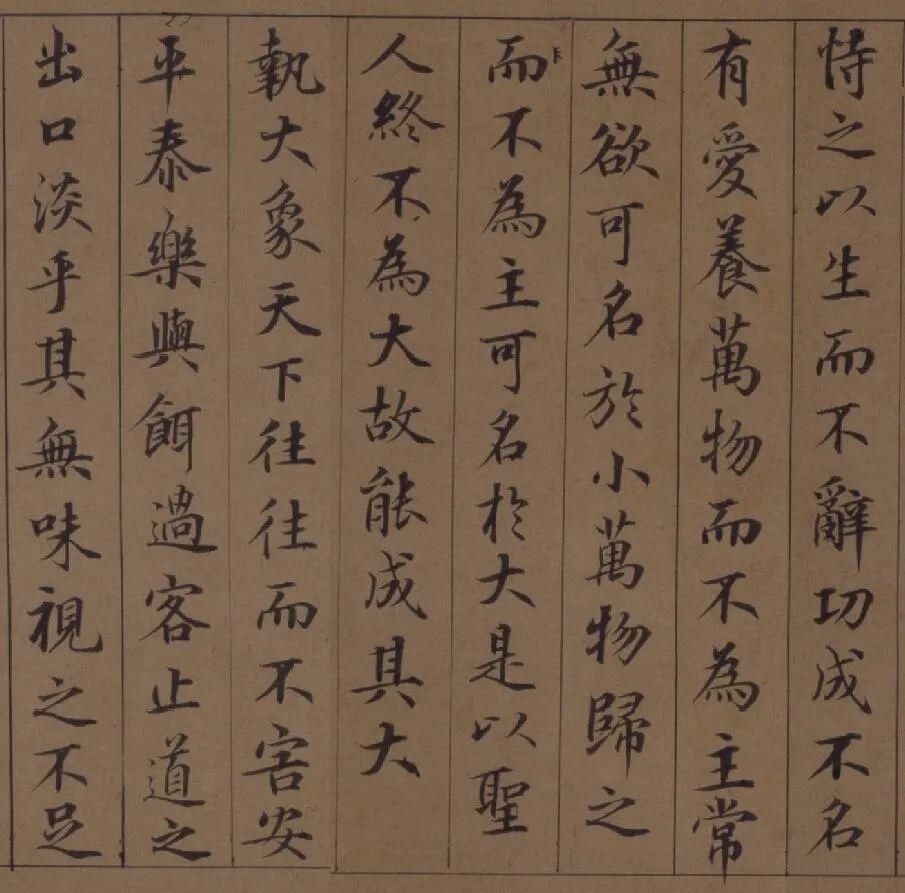 恃之以生而不辭功成不名
有愛養萬物而不為主常
無欲可名於小萬物歸之
而不為主可名於大是以聖
人終不為大故能成其大
執大象天下往往而不害安
平泰樂與餌過客止道之
出口淡乎其無味視之不足